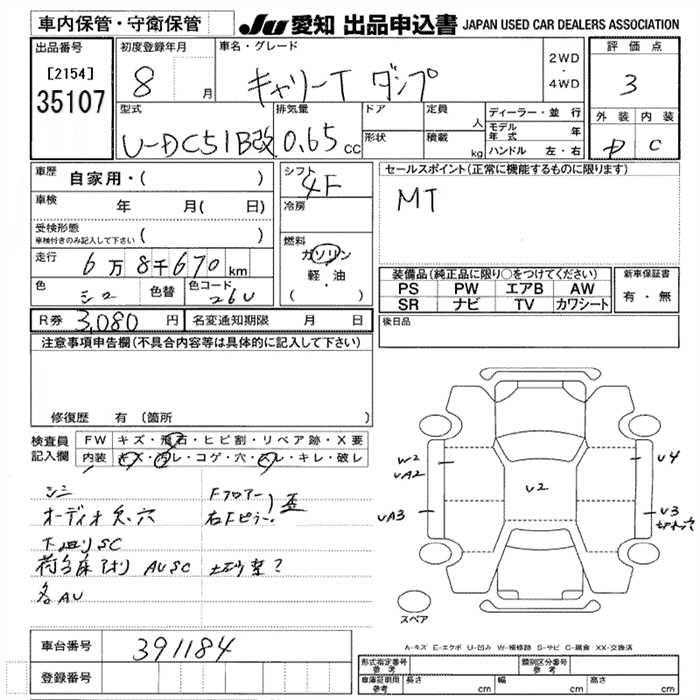 車内保管・守衛保管
JU 愛知 出品申込書 JAPAN USED CAR DEALERS ASSOCIATION
出品番号
[2154]
35107
初度登録年月
8 月
車名・グレード
キャリーT ダンプ
2WD
・
4WD
評価点
3
外装 内装
D C
型式
U-DC51B改
排気量
0.65 cc
ドア
形状
定員 人
積載 kg
ディーラー・並行
モデル年式 年
ハンドル 左・右
車歴 自家用・( )
車検 年 月( 日)
受検形態
車検付きのみ記入して下さい ( )
走行 6万8千670 km
色 シロ 色替 色コード 26U
シフト 4F
冷房
燃料
ガソリン
軽・油
( )
セールスポイント(正常に機能するものに限ります)
MT
装備品(純正品に限り○をつけてください)
PS PW エアB AW
SR ナビ TV カワシート
新車保証書
有・無
R券 3,080 円 名変通知期限 月 日
後日品
注意事項申告欄(不具合内容等は具体的に記入して下さい)
修復歴 有(箇所 )
検査員記入欄
FW キズ・飛石・ヒビ割・リペア跡・X要
内装 キズ・汚レ・コゲ・穴・スレ・キレ・破レ
シミ
オーディオ欠.穴
下回りSC
AUSC
各AU
Fフロアー
右Fピラー
歪
W2
UA2
UA3
U2
U4
U3
スペア
A-キズ E-エクボ U-凹み W-補修跡 S-サビ C-腐食 XX-交換済
車台番号 391184
登録番号
形式指定番号 参考
類別区分番号 参考
車庫証明用 参考 長さ cm 幅 cm 高さ cm